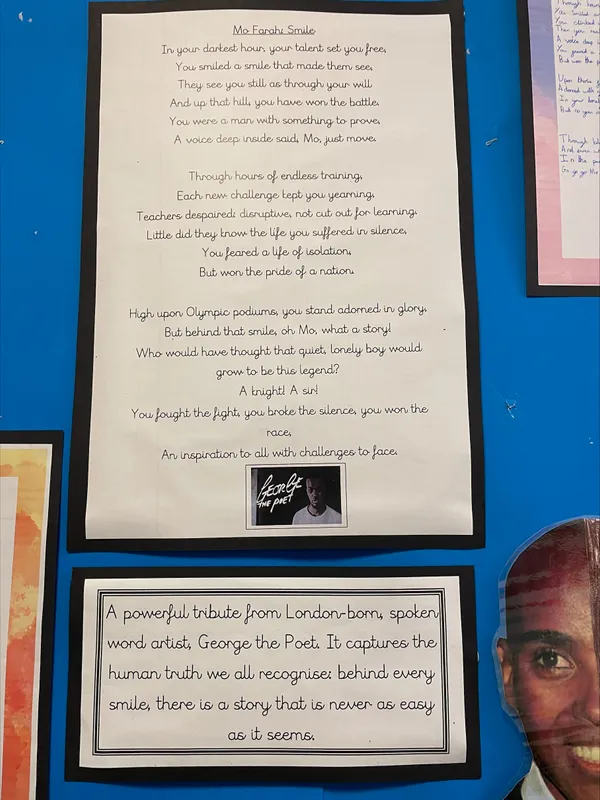 Mo Farah: Smile
In your darkest hour, your talent set you free,
You smiled a smile that made them see,
They see you still as through your will
And up that hill, you have won the battle.
You were a man with something to prove,
A voice deep inside said, Mo, just move.
Through hours of endless training,
Each new challenge kept you yearning,
Teachers despaired: disruptive, not cut out for learning,
Little did they know the life you suffered in silence,
You feared a life of isolation,
But won the pride of a nation.
High upon Olympic podiums, you stand adorned in glory,
But behind that smile, oh Mo, what a story!
Who would have thought that quiet, lonely boy would
grow to be this legend?
A knight! A sir!
You fought the fight, you broke the silence, you won the
race,
An inspiration to all with challenges to face.
GEORGE
THE POET
A powerful tribute from London-born, spoken
word artist, George the Poet. It captures the
human truth we all recognise: behind every
smile, there is a story that is never as easy
as it seems.
Through hour
You smiled a
You climbed
A voice deep i
But won the p
Upon those p
Adorned with g
In your
But
Through
And even
In the
Go go go Mo